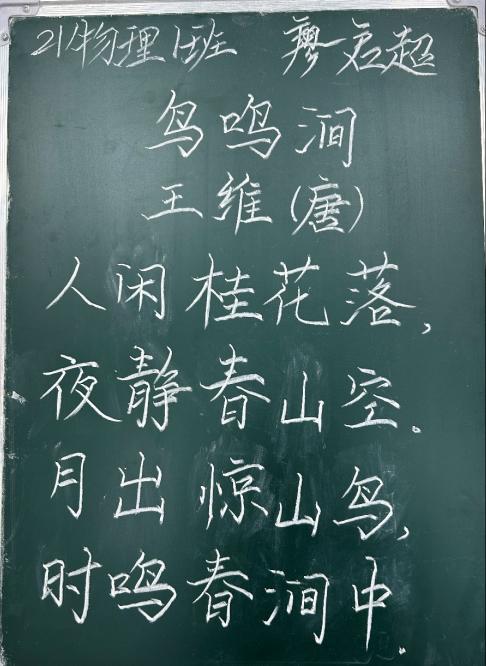 21物理1班 廖君超
鸟鸣涧
王维(唐)
人闲桂花落,
夜静春山空.
月出惊山鸟,
时鸣春涧中.